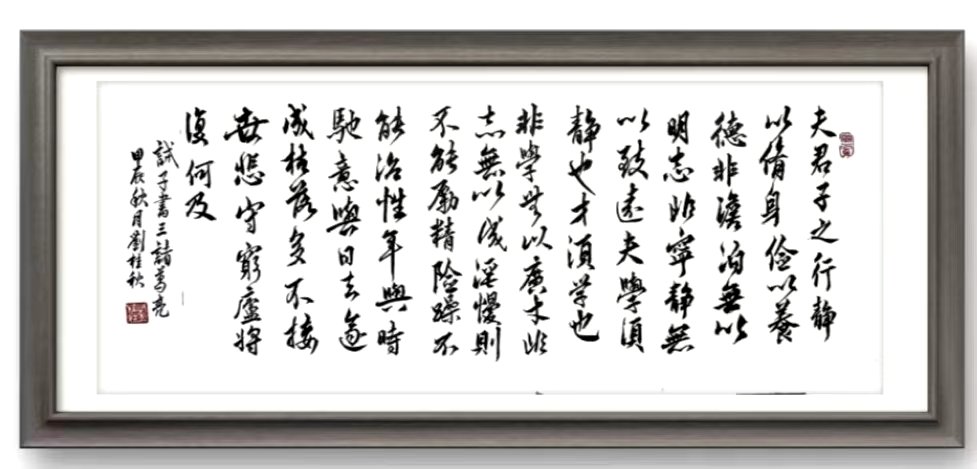 夫君子之行静
以脩身俭以養
德非澹泊無以
明志非寧静無
以致遠夫學須
静也才須学也
非學無以廣才非
志無以成淫慢則
不能勵精险躁不
能治性年與時
馳意與日去遂
成枯落多不接
世悲守窮廬將
復何及
誡子書三諸葛亮
甲辰秋月劉桂秋